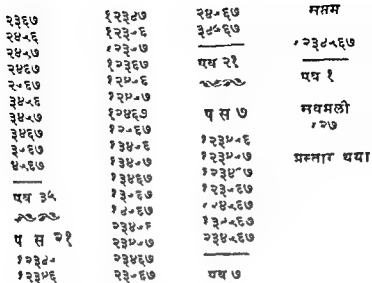 २३६७
२४५६
२४५७
२४६७
२५६७
३४५६
३४५७
३४६७
३५६७
४५६७
एव ३५
प स २१
१२३४५
१२३४६
१२३४७
१२३५६
१२३५७
१२३६७
१२४५६
१२४५७
१२४६७
१२५६७
१३४५६
१३४५७
१३४६७
१३५६७
१४५६७
२३४५६
२३४५७
२३४६७
२३५६७
२४५६७
३४५६७
एव २१
ष स ७
१२३४५६
१२३४५७
१२३४६७
१२३५६७
१२४५६७
१३४५६७
२३४५६७
एव ७
सप्तम
१२३४५६७
एव १
सवमली
१२७
प्रस्तार थया